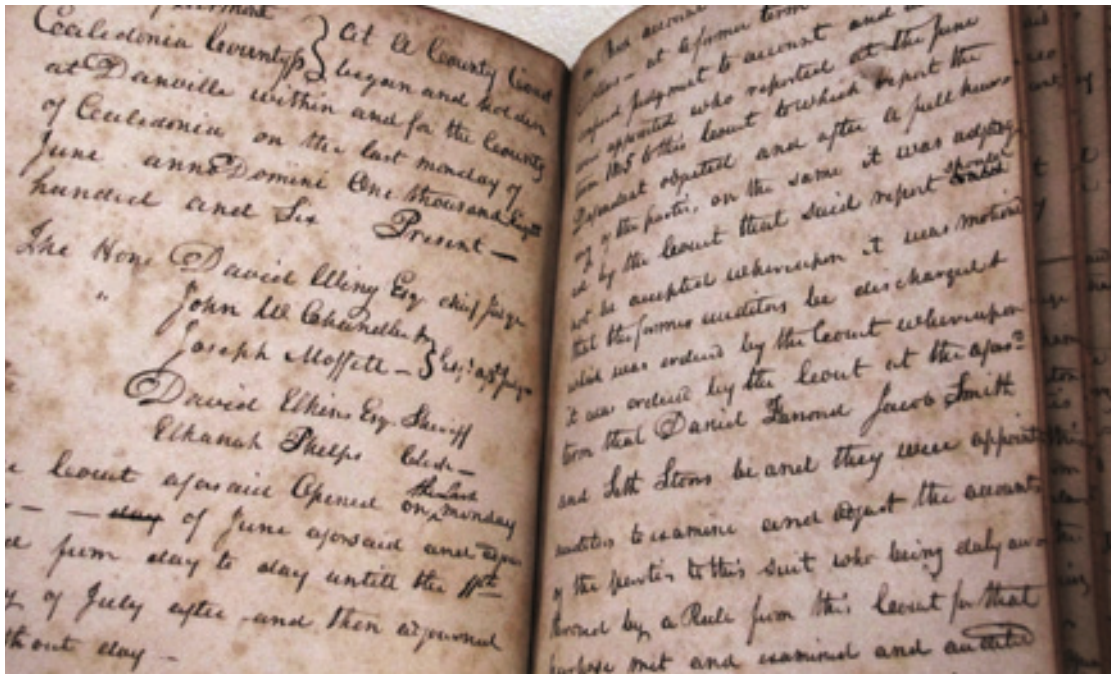 Caledonia County ss } At a County Court
begun and holden
at Danville within and for the County
of Caledonia on the last monday of
June anno Domini One thousand Eight
hundred and Six
Present —
The Hon. David Wing Esq chief Judge
" John W Chandler
Joseph Moffett — } Esq.s
David Elkins Esq. Sheriff
Elkanah Phelps Clerk —
Court aforesaid Opened on the Last monday
— — day of June aforesaid and
from day to day untill the
of July after and then adjourned
thout day —
account
at a former term
Judgment to account and
were appointed who reported at the June
term 1805 to this Court to which report the
Defendant objected and after a full
of the parties on the same it was
ed by the Court that said report should
not be accepted whereupon it was motion
that the former auditors be discharged &
which was ordered by the Court whereupon
it was ordered by the Court at the afors.d
term that Daniel Jacob Smith
and Seth Stone be and they were appoint
auditors to examine and adjust the accounts
of the parties to this suit who being duly
by a Rule from this Court for that
purpose met and examined and